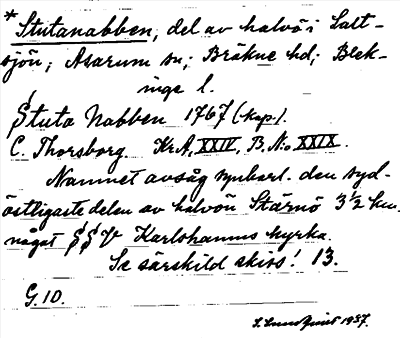 *Stutanabben, del av halvö i Salt-
sjön; Asarum sn; Bräkne hd; Blek-
inge l.
Stuta Nabben 1767 (kop.).
C. Thorsborg. Kr.A, XXIV, B, N:o XXIX.
Namnet avsåg synbarl. den syd-
östligaste delen av halvön Stärnö 3½ km.
något SSV Karlshamns kyrka.
Se särskild skiss! 13.
G.10.
S. Lundqvist 1937.